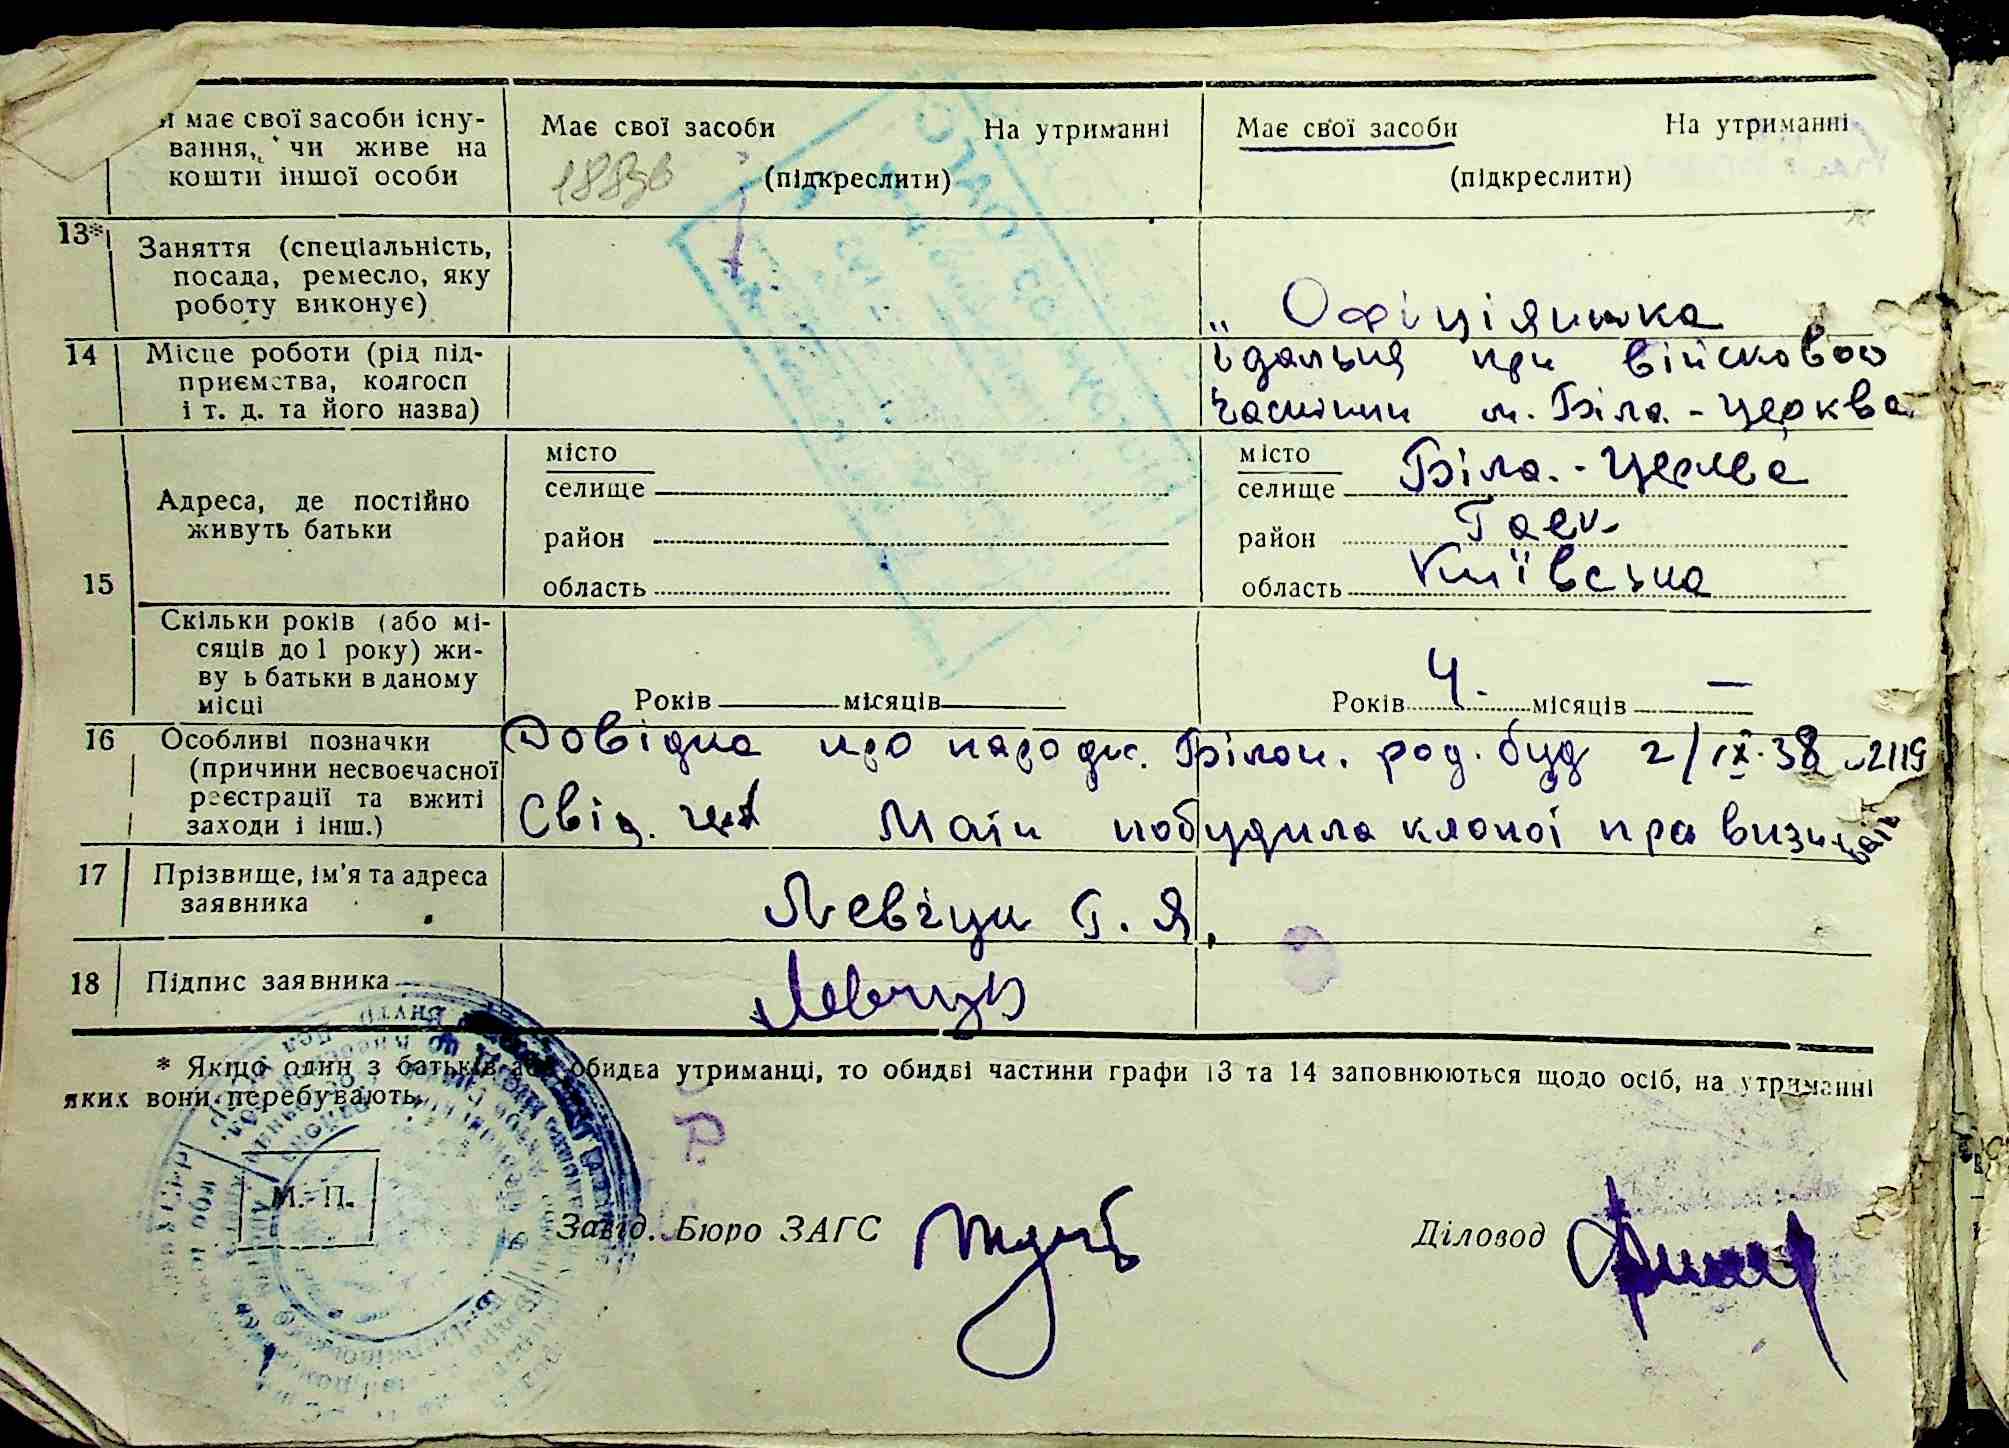 и має свої засоби існу-
вання, чи живе на
кошти іншої особи
Має свої засоби На утриманні
(підкреслити)
Має свої засоби На утриманні
(підкреслити)
13* Заняття (спеціальність,
посада, ремесло, яку
роботу виконує)
Офіціянтка
14 Місце роботи (рід під-
приємства, колгосп
і т. д. та його назва)
їдальня при військовой
частини м. Біла-Церква
15 Адреса, де постійно
живуть батьки
місто
селище
район
область
місто
селище Біла-Церква
район Гаек
область Київська
Скільки років (або мі-
сяців до 1 року) жи-
ву ь батьки в даному
місці
Років місяців
Років 4. місяців —
16 Особливі позначки
(причини несвоєчасної
реєстрації та вжиті
заходи і інш.)
Довідка про народж. Білоц. род. буд 2/IX.38 2119
Свід. Мати побудила клопоі про визн
17 Прізвище, ім'я та адреса
заявника
Левчук Г. Я.
18 Підпис заявника
Левчук
* Якщо один з батьків або обидва утриманці, то обидві частини графи 13 та 14 заповнюються щодо осіб, на утриманні
яких вони перебувають.
М. П.
Завід. Бюро ЗАГС
Діловод